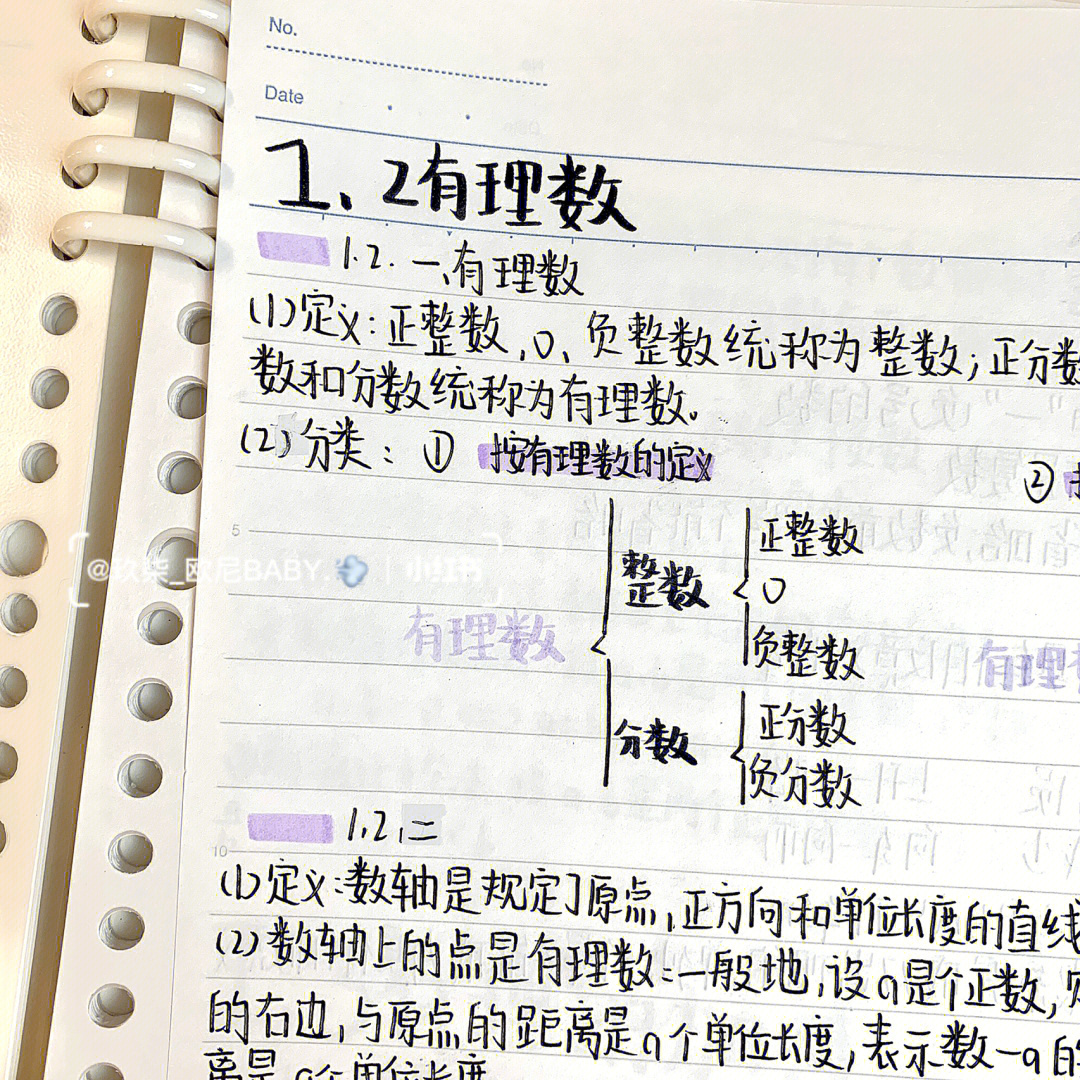 No.
Date
1、2有理数
1.2.一、有理数
(1)定义:正整数、0、负整数统称为整数;正分数
数和分数统称为有理数。
(2)分类:① 按有理数的定义 ②
正整数
整数 0
有理数 负整数 有理
分数 正分数
负分数
1、2、二
(1)定义:数轴是规定了原点,正方向和单位长度的直线
(2)数轴上的点是有理数:一般地,设a是个正数,
的右边,与原点的距离是a个单位长度,表示数-a的
离是a个单位长度
5
10
BABY.